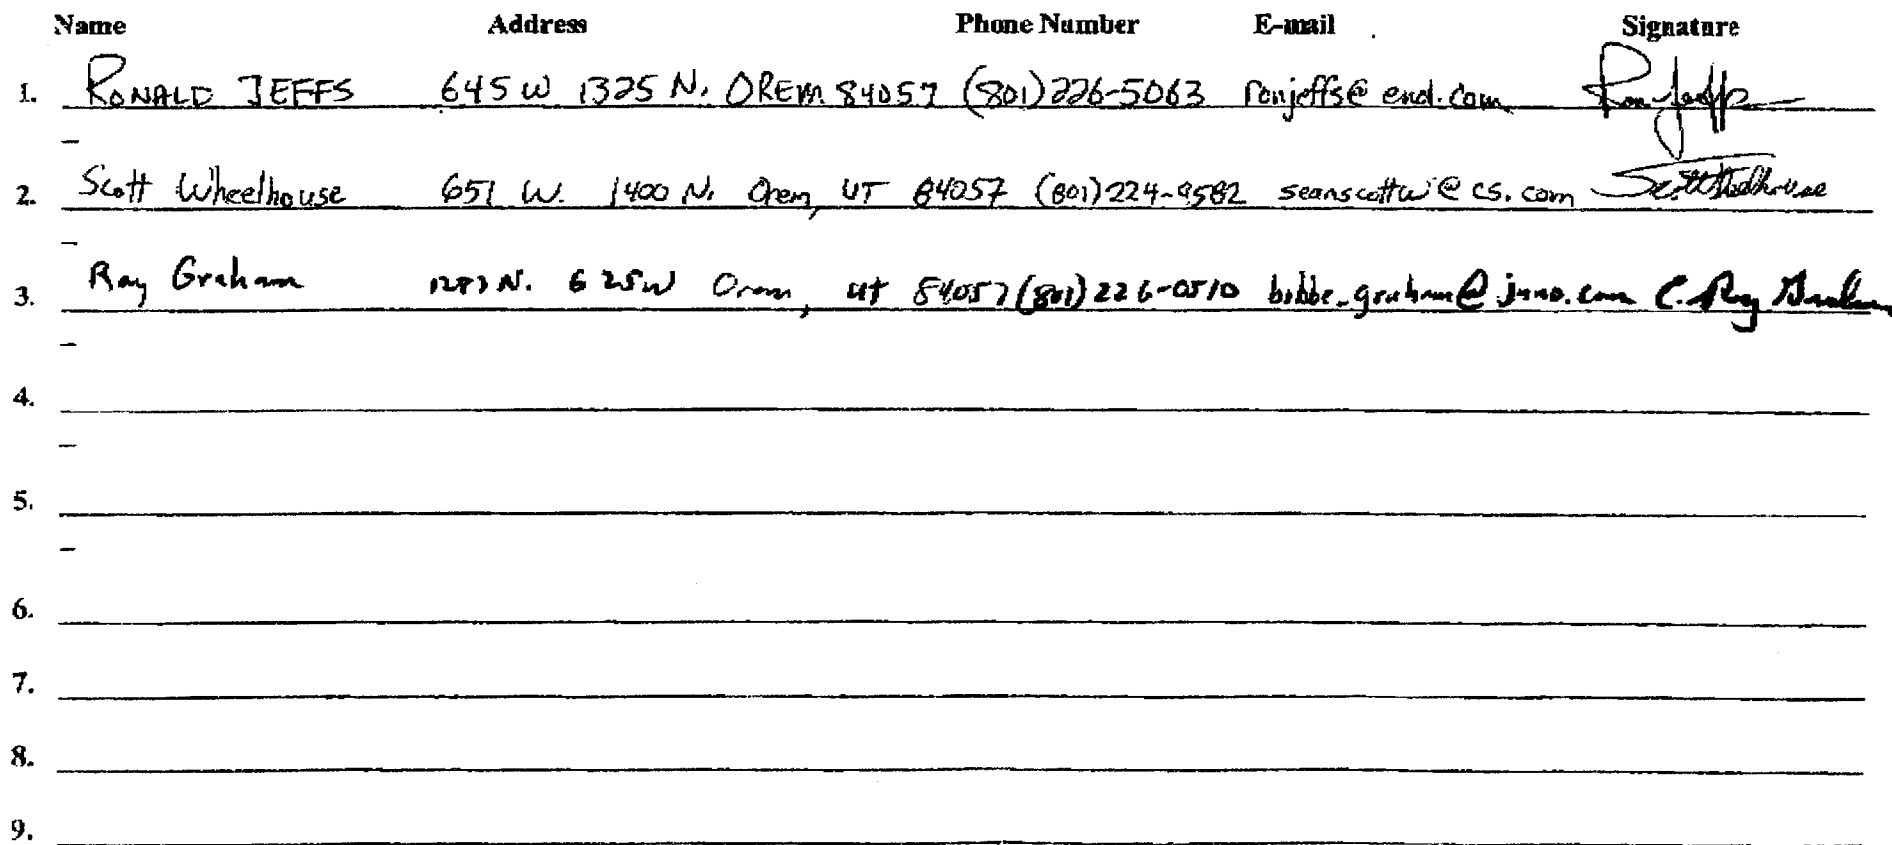 Name Address Phone Number E-mail Signature
1. RONALD JEFFS 645 W 1325 N. OREM 84057 (801) 226-5063 ronjeffs@end.com Ron Jeffs
2. Scott Wheelhouse 651 W. 1400 N. Orem, UT 84057 (801) 224-9582 seanscottwi@cs.com Scott Wheelhouse
3. Ray Graham N. 625 W Orem, UT 84057 (801) 226-0510 bobbe_graham@juno.com C. Ray Graham
4.
5.
6.
7.
8.
9.